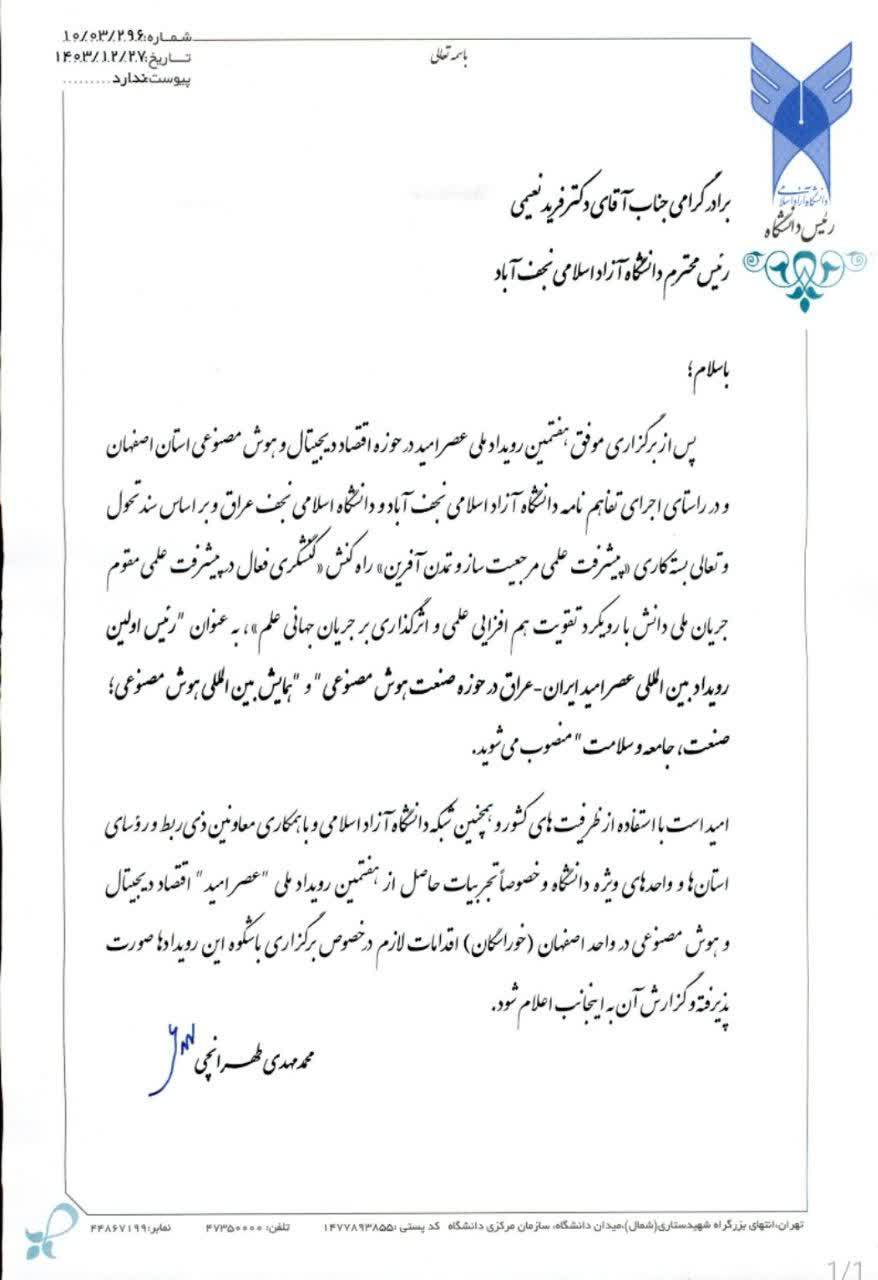 شماره: ۱۰/۰۳/۲۹۶
تاریخ: ۱۴۰۳/۱۲/۲۷
پیوست: ندارد
باسمه تعالی
دانشگاه آزاد اسلامی
رئیس دانشگاه
برادر گرامی جناب آقای دکتر فرید نعیمی
رئیس محترم دانشگاه آزاد اسلامی نجف آباد
باسلام؛
پس از برگزاری موفق هفتمین رویداد ملی عصر امید در حوزه اقتصاد دیجیتال و هوش مصنوعی استان اصفهان
و در راستای اجرای تفاهم نامه دانشگاه آزاد اسلامی نجف آباد و دانشگاه اسلامی نجف عراق و بر اساس سند تحول
و تعالی بسته کاری «پیشرفت علمی مرجعیت ساز و تمدن آفرین» راه کنش «کنشگری فعال در پیشرفت علمی مقوم
جریان ملی دانش با رویکرد تقویت هم افزایی علمی و اثرگذاری بر جریان جهانی علم»، به عنوان "رئیس اولین
رویداد بین المللی عصر امید ایران-عراق در حوزه صنعت هوش مصنوعی" و "همایش بین المللی هوش مصنوعی؛
صنعت، جامعه و سلامت" منصوب می شوید.
امید است با استفاده از ظرفیت های کشور و همچنین شبکه دانشگاه آزاد اسلامی و با همکاری معاونین ذی ربط و رؤسای
استان ها و واحدهای ویژه دانشگاه و خصوصاً تجربیات حاصل از هفتمین رویداد ملی "عصر امید" اقتصاد دیجیتال
و هوش مصنوعی در واحد اصفهان (خوراسگان) اقدامات لازم درخصوص برگزاری باشکوه این رویدادها صورت
پذیرفته و گزارش آن به اینجانب اعلام شود.
محمد مهدی طهرانچی
تهران، انتهای بزرگراه شهیدستاری(شمال)، میدان دانشگاه، سازمان مرکزی دانشگاه کد پستی: ۱۴۷۷۸۹۳۸۵۵ تلفن: ۴۷۳۵۰۰۰۰ نمابر: ۴۴۸۶۷۱۹۹
1/1